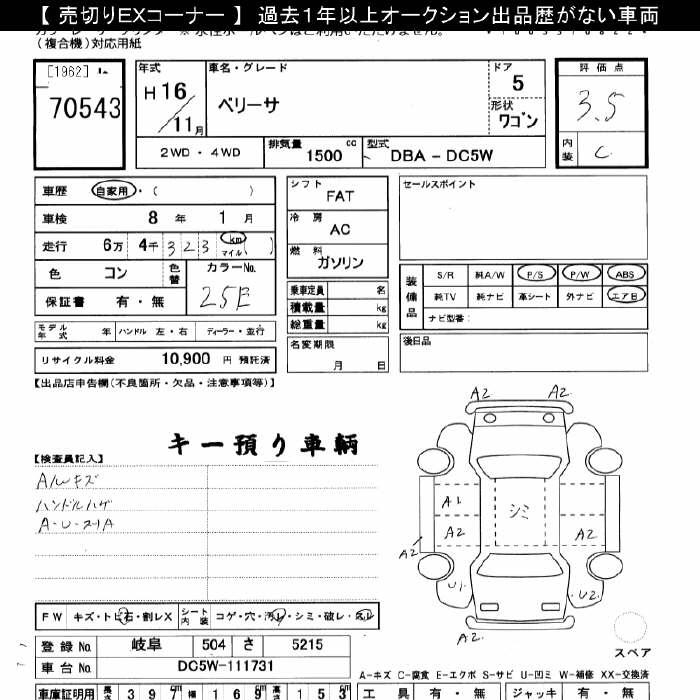 【 売切りEXコーナー 】 過去1年以上オークション出品歴がない車両
(複合機)対応用紙
[1962]
70543
年式
H 16
11月
車名・グレード
ベリーサ
ドア
5
形状
ワゴン
評価点
3.5
内装
C
2WD ・ 4WD
排気量
1500 cc
型式
DBA - DC5W
車歴 自家用・( )
車検 8 年 1 月
走行 6万 4千 323 km マイル( )
色 コン
色替
カラーNo.
25E
保証書 有・無
モデル年式 年 ハンドル 左・右 ディーラー・並行
リサイクル料金 10,900 円 預託済
シフト
FAT
冷房
AC
燃料
ガソリン
乗車定員 名
積載量 kg
総重量 kg
名変期限
月 日
セールスポイント
装備品
S/R 純A/W P/S P/W ABS
純TV 純ナビ 革シート 外ナビ エアB
ナビ型番:
後日品
【出品店申告欄(不良箇所・欠品・注意事項等)】
キー預り車輌
【検査員記入】
A/Wキズ
ハンドルハゲ
A-U-スリA
A2 A2
A1
シミ
A2
A2
A2
U1
U2
A2
スペア
FW キズ・トビ石・割レX シート内装 コゲ・穴・汚レ・シミ・破レ・スレ
登録No. 岐阜 504 さ 5215
車台No. DC5W-111731
A-キズ C-腐食 E-エクボ S-サビ U-凹ミ W-補修 XX-交換済
車庫証明用 長さ 397 幅 169 高さ 153
工具 有・無 ジャッキ 有・無